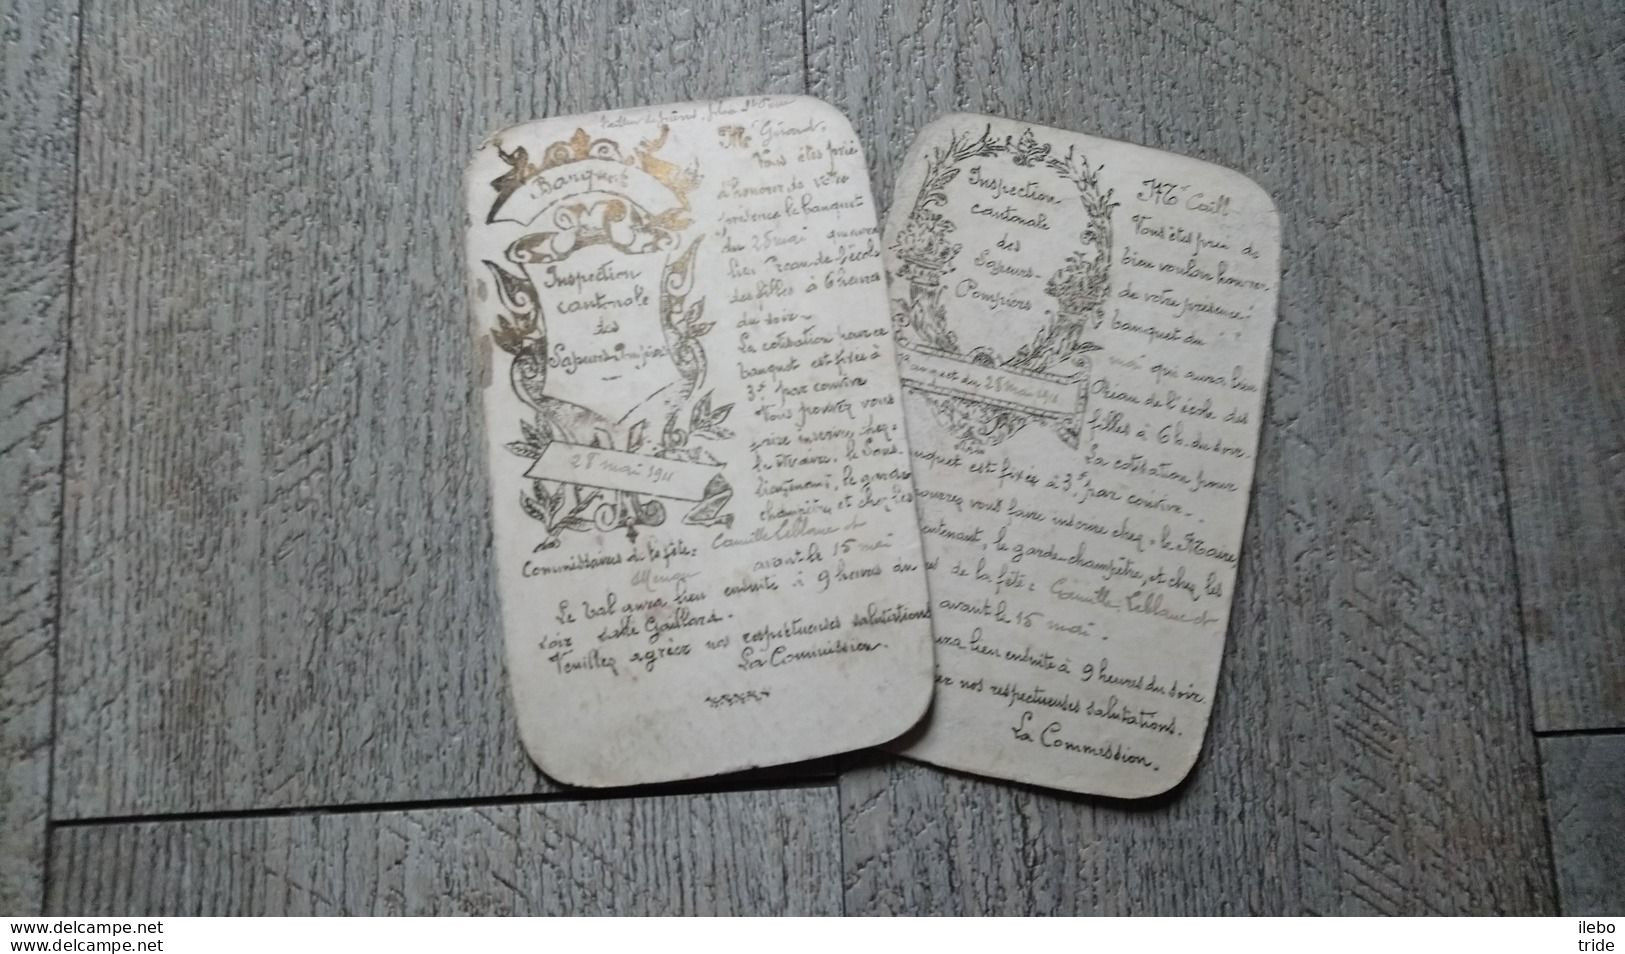 Banquet
Inspection
cantonale
des
Sapeurs-Pompiers
28 mai 1911
Mr Giroud.
Vous êtes prié
d'honorer de votre
présence le banquet
du 28 mai qui aura
lieu Préau de l'école
des filles à 6 heures
du soir.
La cotisation pour ce
banquet est fixée à
3.f par convive
Vous pouvez vous
faire inscrire chez
le Maire, le Sous-
lieutenant, le garde
champêtre et chez les
Commissaires de la fête: Camille Leblanc et
avant le 15 mai
Le bal aura lieu ensuite à 9 heures du
soir salle Gaillard.
Veuillez agréer nos respectueuses salutations
La Commission.
Inspection
cantonale
des
Sapeurs-
Pompiers
banquet du 28 mai 1911
Mr Caill
Vous êtes prié de
bien vouloir honorer
de votre présence
banquet du
mai qui aura lieu
Préau de l'école des
filles à 6 h. du soir.
La cotisation pour
nquet est fixée à 3.f par convive.
pourrez vous faire inscrire chez le Maire,
eutenant, le garde-champêtre, et chez les
es de la fête: Camille Leblanc et
avant le 15 mai.
ura lieu ensuite à 9 heures du soir.
er nos respectueuses salutations.
La Commission.
ilebo
tride
www.delcampe.net
www.delcampe.net